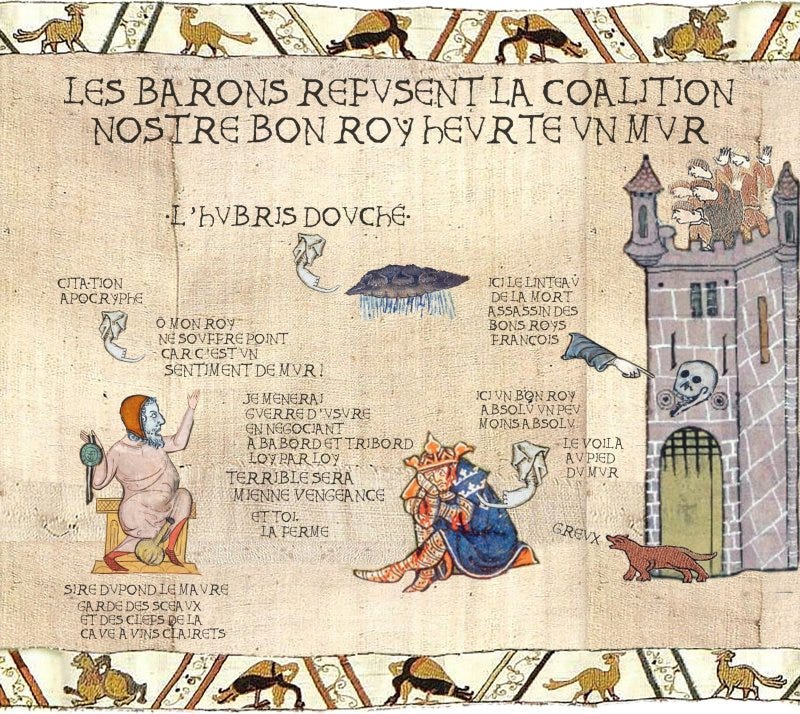 LES BARONS REFVSENT LA COALITION
NOSTRE BON ROY HEVRTE VN MVR
·L'HVBRIS DOVCHÉ·
CITATION
APOCRYPHE
Ô MON ROY
NE SOVFFRE POINT
CAR C'EST VN
SENTIMENT DE MVR !
ICI LE LINTEAV
DE LA MORT
ASSASSIN DES
BONS ROYS
FRANÇOIS
JE MENERAI
GVERRE D'VSVRE
EN NEGOCIANT
A BABORD ET TRIBORD
LOY PAR LOY
TERRIBLE SERA
MIENNE VENGEANCE
ET TOI,
LA FERME
ICI VN BON ROY
ABSOLV VN PEV
MOINS ABSOLV
LE VOILA
AV PIED
DV MVR
GREVX
SIRE DVPOND LE MAVRE
GARDE DES SCEAVX
ET DES CLEFS DE LA
CAVE A VINS CLAIRETS